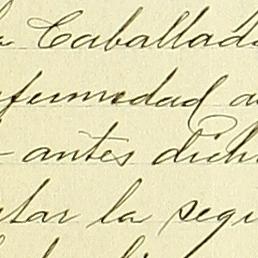 a Caballad
fermedad a
- antes dich
tar la segu